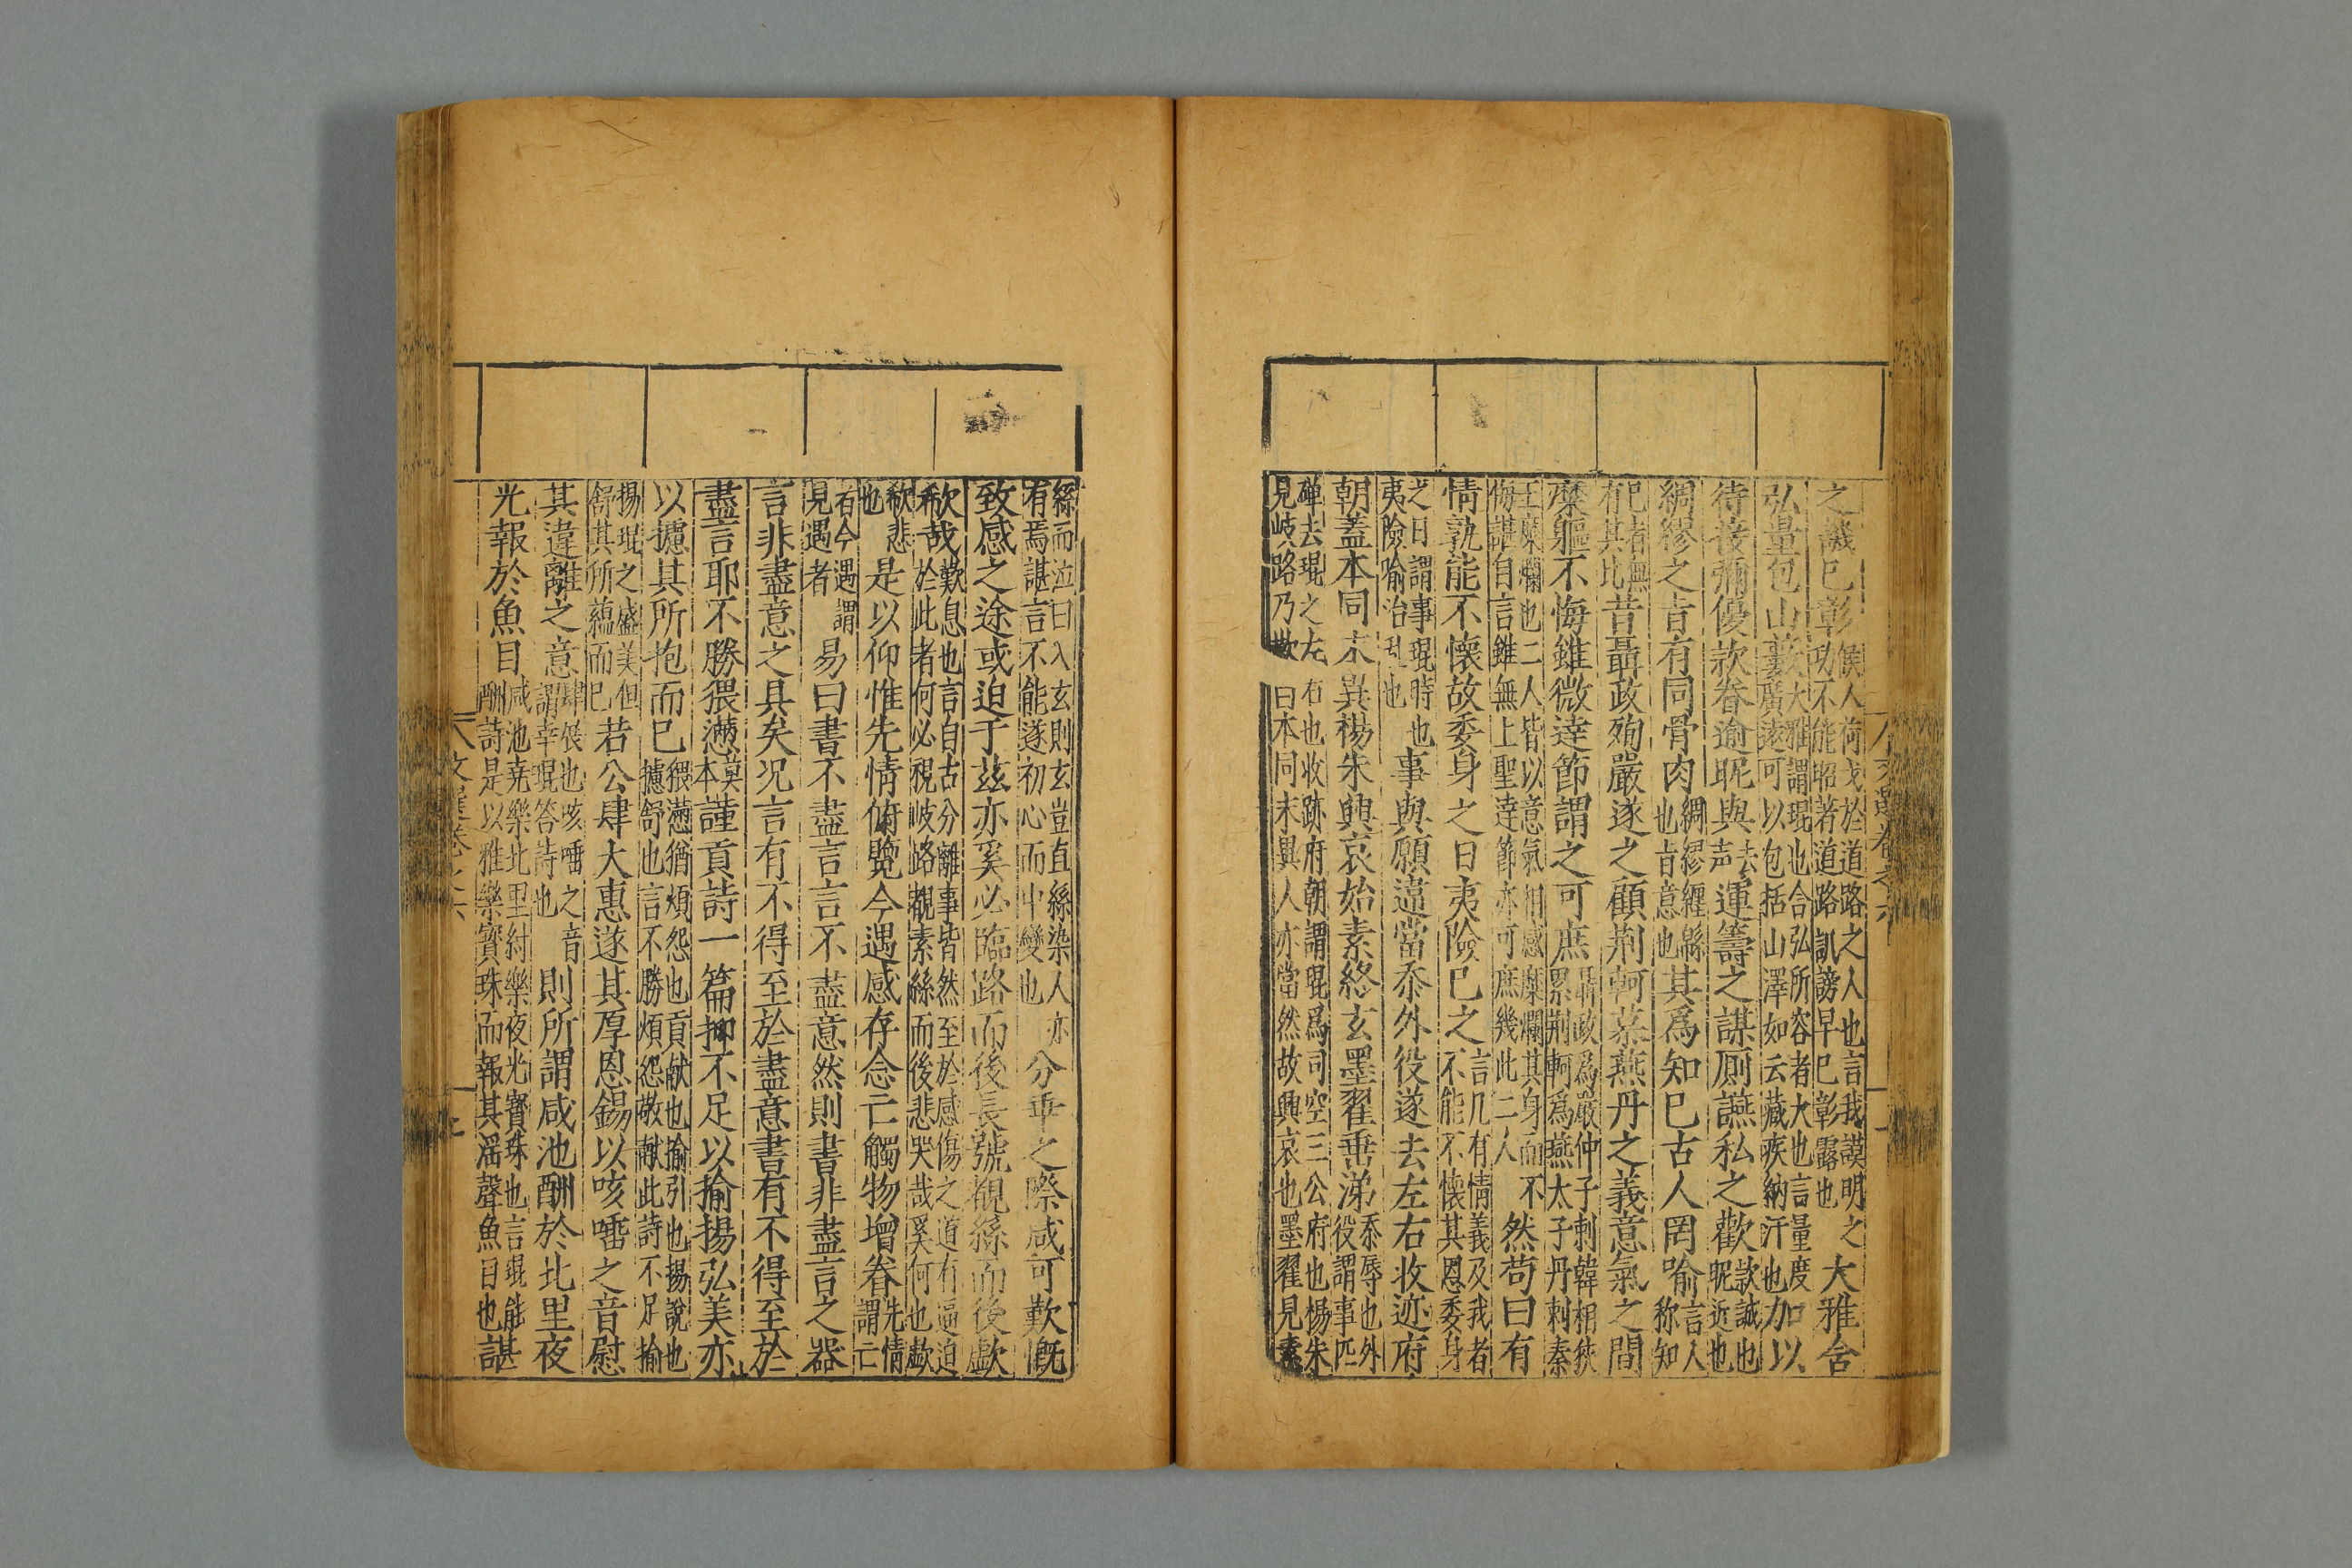 之譏已彰候人荷戈於道路之人也言我謨明之功不能昭著道路訕謗早已彰露也大雅含
弘量包山藪大雅謂琨也含弘所容者大也言量度廣遠可以包括山澤如云藏疾納汙也加以
待接彌優款眷逾昵與去声運籌之謀厠讌私之歡款誠也昵近也
綢繆之旨有同骨肉綢繆纏緜也旨意也其爲知巳古人罔喻言人称知
巳者無有其比昔聶政殉嚴遂之顧荆軻慕燕丹之義意氣之間
糜軀不悔雖微逹節謂之可庶聶政爲嚴仲子刺韓相俠累荆軻爲燕太子丹刺秦
王糜爛也二人皆以意氣相感糜爛其身而不悔諶自言雖無上聖逹節亦可庶幾此二人然苟曰有
情孰能不懷故委身之日夷險巳之言凡有情義及我者不能不懷其恩委身
之日謂事琨時也夷險喻治乱也事與願違當忝外役遂去左右收迹府
朝蓋本同末異楊朱興哀始素終玄墨翟垂涕忝辱也外役謂事匹
磾去琨之左右也收跡府朝謂琨爲司空三公府也楊朱見岐路乃歎曰本同末異人亦當然故興哀也墨翟見素
絲而泣曰入玄則玄豈直絲染人亦有焉諶言不能遂初心而中變也分乖之際咸可歎慨
致感之途或迫于茲亦奚必臨路而後長號覩絲而後歔
欷哉歎息也言自古分離事皆然至於感傷之道有逼迫於此者何必視岐路覩素絲而後悲哭哉奚何也歔
欷悲也是以仰惟先情俯覽今遇感存念亡觸物增眷先情謂亡
者今遇謂見遇者易曰書不盡言言不盡意然則書非盡言之器
言非盡意之具矣况言有不得至於盡意書有不得至於
盡言耶不勝猥懣莫本謹貢詩一篇抑不足以揄揚弘美亦
以攄其所抱而巳猥懣猶煩怨也貢献也揄引也揚說也攄舒也言不勝煩怨敬献此詩不足揄
揚琨之盛美但舒其所蘊而巳若公肆大惠遂其厚恩錫以咳唾之音慰
其違離之意肆候也咳唾之音謂幸琨答詩也則所謂咸池酬於北里夜
光報於魚目咸池堯樂北里紂樂夜光寳珠也言琨能酬詩是以雅樂寳珠而報其滛聲魚目也諶